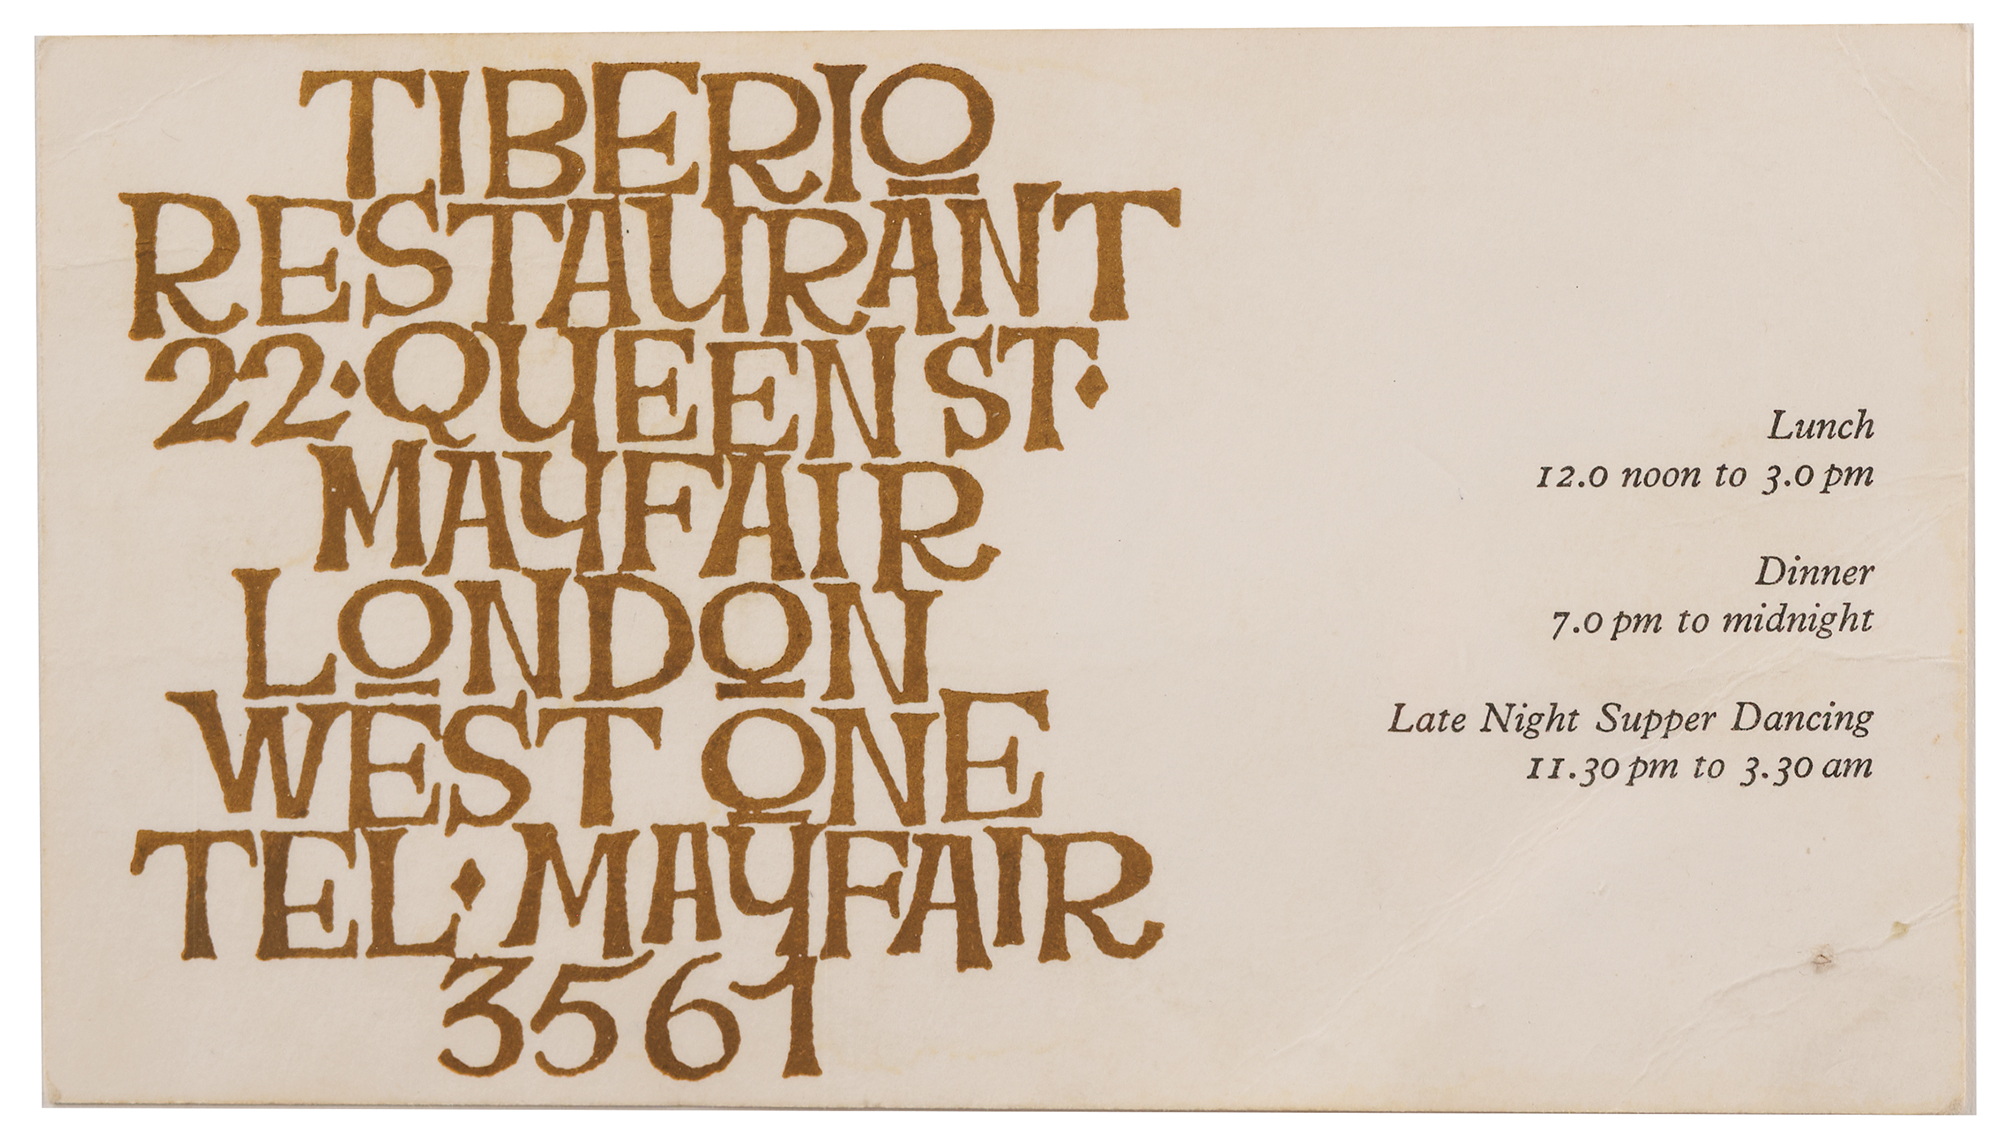 TIBERIO
RESTAURANT
22·QUEEN ST·
MAYFAIR
LONDON
WEST ONE
TEL·MAYFAIR
3561
Lunch
12.0 noon to 3.0 pm
Dinner
7.0 pm to midnight
Late Night Supper Dancing
11.30 pm to 3.30 am